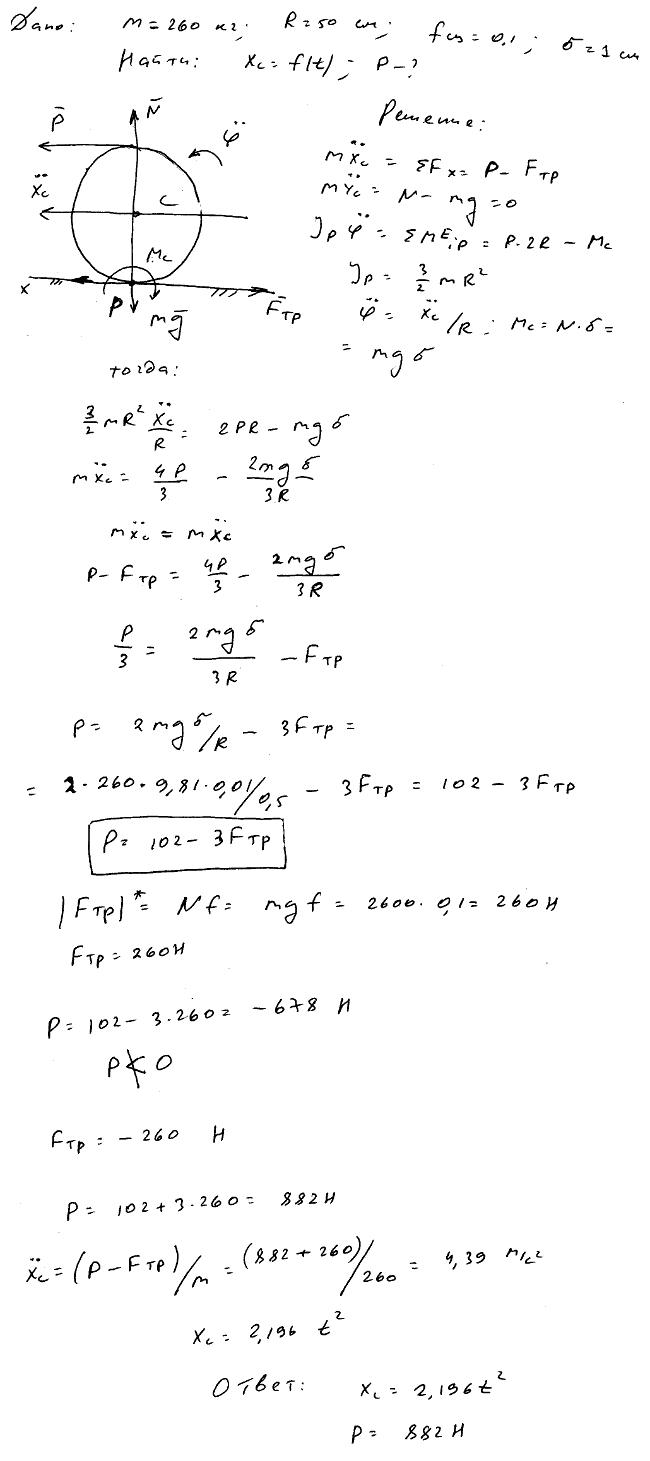 Дано: m = 260 кг; R = 50 см; fсц = 0,1; δ = 1 см
Найти: Xc = f(t); P - ?
P̄ N̄ φ̈
Ẍc C
Mc
x P mḡ F̄тр
Решение:
mẌc = ΣFx = P - Fтр
mŸc = N - mg = 0
Jp φ̈ = ΣM^E_ip = P·2R - Mc
Jp = 3/2 mR²
φ̈ = Ẍc/R ; Mc = N·δ =
= mgδ
тогда:
3/2 mR² Ẍc/R = 2PR - mgδ
mẌc = 4P/3 - 2mgδ/3R
mẌc = mẌc
P - Fтр = 4P/3 - 2mgδ/3R
P/3 = 2mgδ/3R - Fтр
P = 2mgδ/R - 3Fтр =
= 2·260·9,81·0,01/0,5 - 3Fтр = 102 - 3Fтр
P = 102 - 3Fтр
|Fтр|* = Nf = mgf = 2600·0,1 = 260 Н
Fтр = 260 Н
P = 102 - 3·260 = -678 Н
P ≮ 0
Fтр = -260 Н
P = 102 + 3·260 = 882 Н
Ẍc = (P - Fтр)/m = (882 + 260)/260 = 4,39 м/с²
Xc = 2,196 t²
Ответ: Xc = 2,196 t²
P = 882 Н